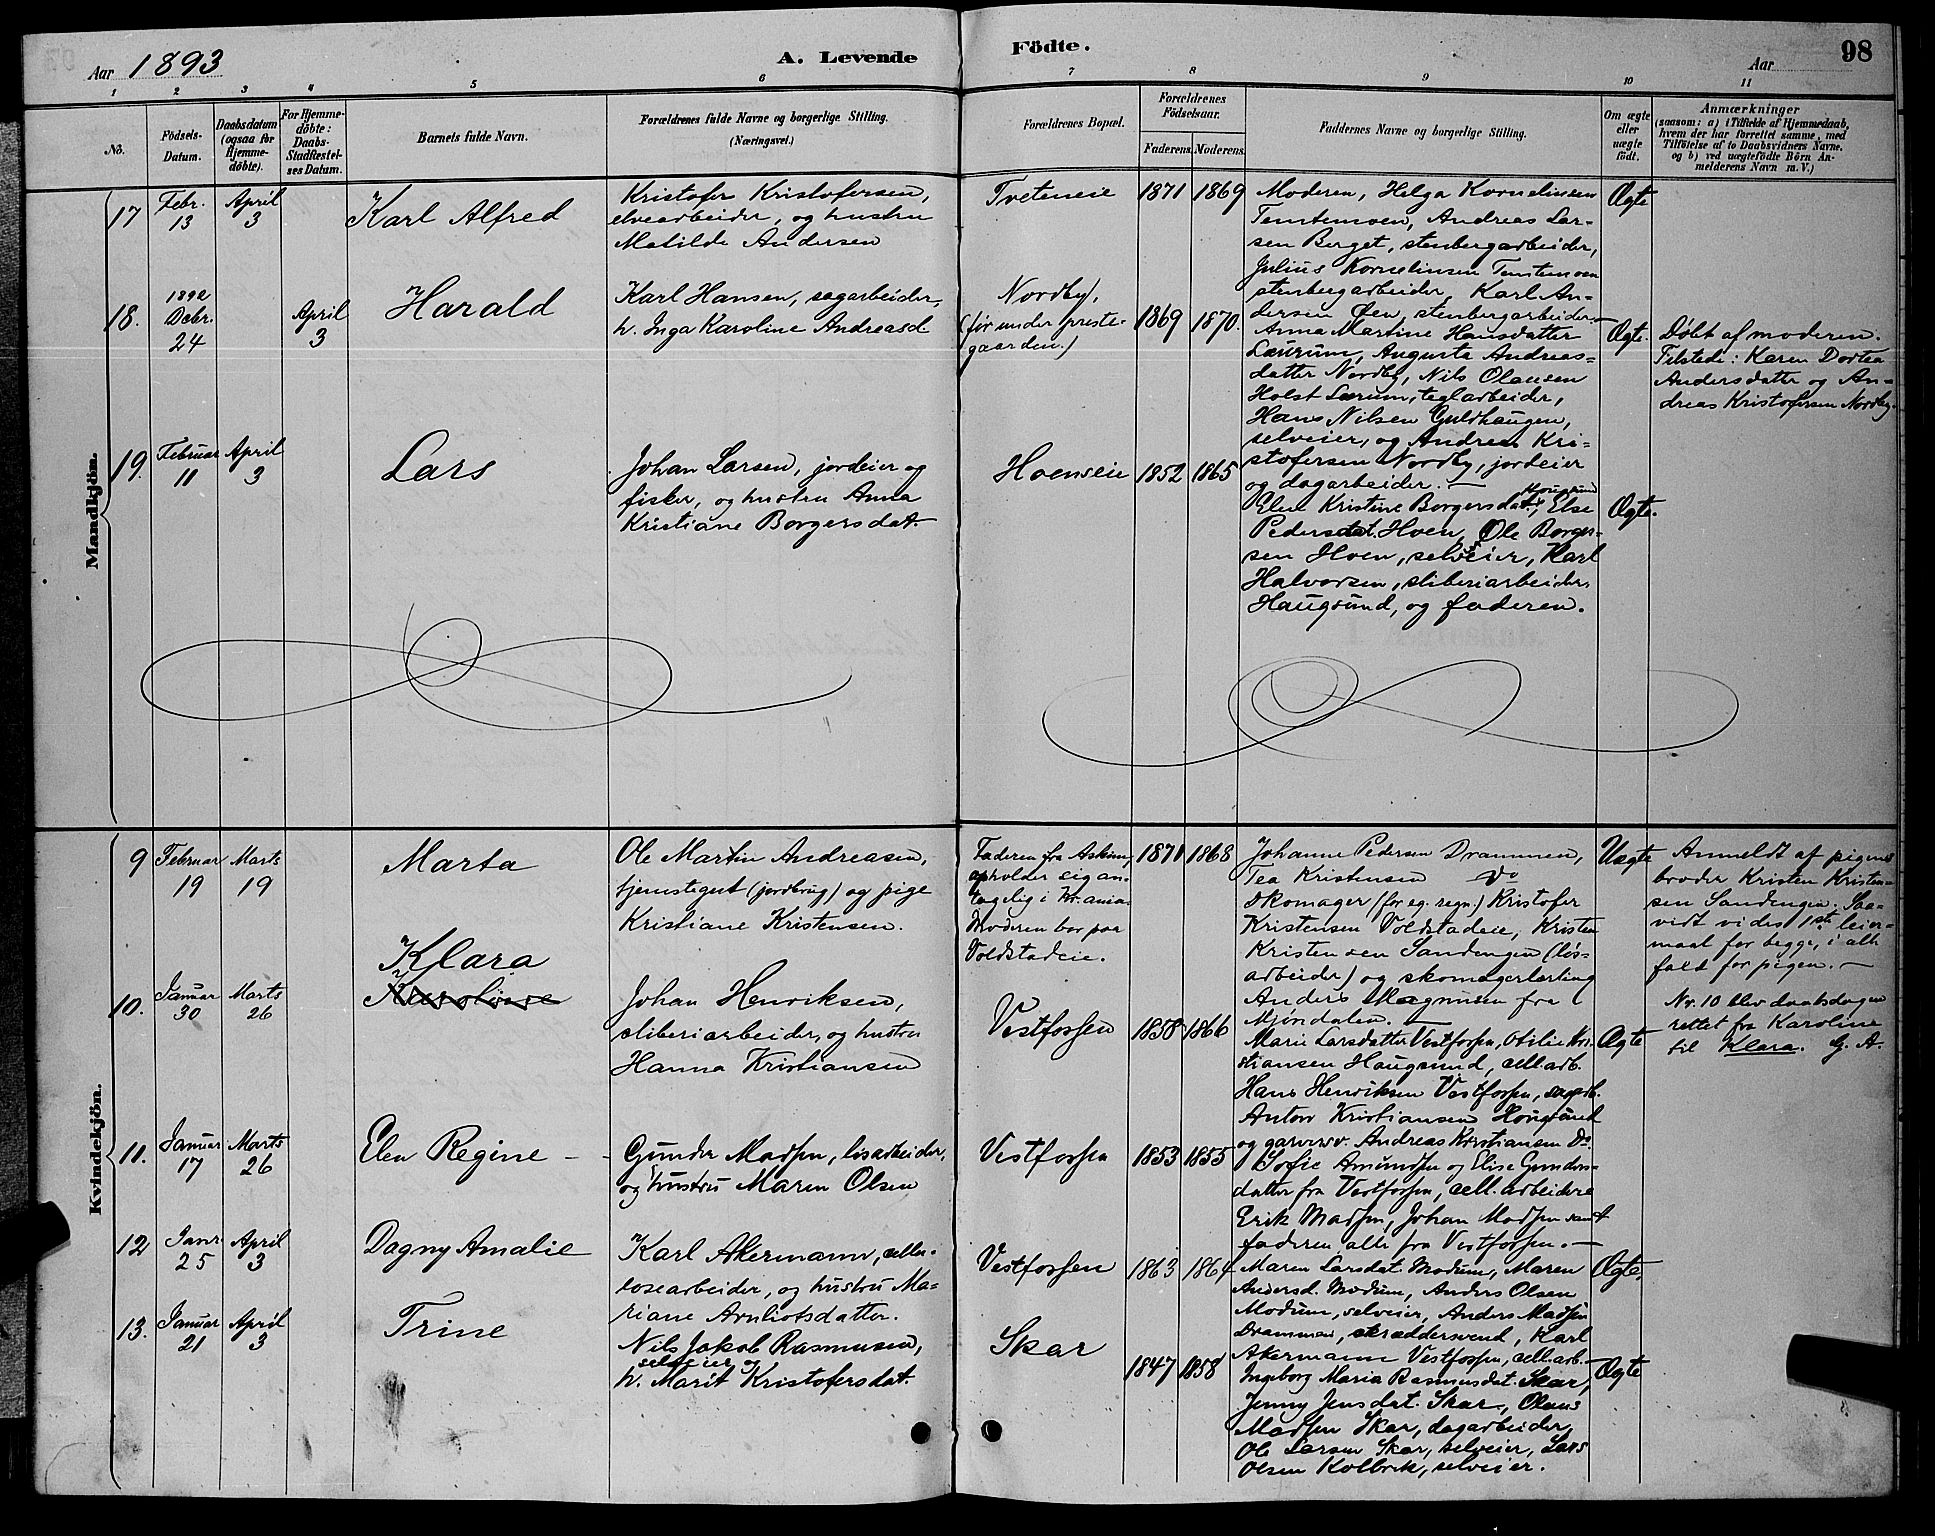 Aar 1893
A. Levende Födte.
98
Aar
1 2 3 4 5 6 7 8 9 10 11
No.
Födsels-Datum.
Daabsdatum (ogsaa for Hjemme-döbte).
For Hjemme-döbte: Daabs-Stadfæstel-ses Datum.
Barnets fulde Navn.
Forældrenes fulde Navne og borgerlige Stilling. (Næringsvei.)
Forældrenes Bopæl.
Forældrenes Födselsaar.
Faderens. Moderens.
Faddernes Navne og borgerlige Stilling.
Om ægte eller uægte födt.
Anmærkninger
(saasom: a) i Tilfælde af Hjemmedaab,
hvem der har forrettet samme, med
Tilföielse af to Daabsvidners Navne.
og b) ved uægtefödte Börn An-
melderens Navn m. V.)
Mandkjön.
17 Febr. 13 April 3
Karl Alfred
Kristofer Kristofersen,
elvearbeider, og hustru
Matilde Andersen
Tveteneie
1871 1869
Moderen, Helga Kornelinsen
Temtemoen, Andreas Lar-
sen Berget, stenbergarbeider,
Julius Kornelinsen Temtemoen
stenbergarbeider, Karl An-
dersen Øen, stenbergarbeider.
Ægte
18. 1892 Debr. 24 April 3
Harald
Karl Hansen, sagarbeider,
h. Inga Karoline Andreasd.
Nordby,
(før under preste-
gaarden.)
1869 1870.
Anna Martine Hansdatter
Lærum, Augusta Andreas-
datter Nordby, Nils Olausen
Holst Lærum, teglarbeider,
Hans Nilsen Guldhaugen,
selveier, og Andreas Kri-
stofersen Nordby, jordeier
og dagarbeider. —
Ægte.
Døbt af moderen.
Tilstede: Karen Dortea
Andersdatter og An-
dreas Kristofersen Nordby.
19. Februar 11 April 3
Lars
Johan Larsen, jordeier og
fisker, og hustru Anna
Kristiane Borgersdat.
Hoenseie
1852 1865
Elen Kristine Borgersdat., Else
Pedersdat. Hoen, Ole Borger-
sen Hoen, selveier, Karl
Halvorsen, sliberiarbeider
Haugsund, og faderen.
Ægte.
Kvindekjön.
9 Februar 19 Marts 19
Marta
Ole Martin Andreasen,
tjenstegut (jordbrug) og pige
Kristiane Kristensen.
Faderen fra Askim,
opholder sig an-
tagelig i Kr.ania
Moderen bor paa
Voldstadeie.
1871 1868
Johanne Pedersen Drammen,
Tea Kristensen Do
Skomager (for eg. regn.) Kristofer
Kristensen Voldstadeie, Kristen
Kristensen Sandengen (løs-
arbeider) og skomagerlærling
Anders Magnusen fra
Mjøndalen. —
Uægte
Anmeldt af pigens
broder Kristen Kristen-
sen Sandengen. Saa-
vidt vides 1ste leier-
maal for begge, i alt
fald for pigen. —
10. Januar 30 Marts 26
Klara
Karoline
Johan Henriksen,
sliberiarbeider, og hustru
Hanna Kristiansen
Vestfossen
1858 1866
Marie Larsdatter Vestfossen, Otilie Kri-
stiansen Haugsund, cell.arb.
Hans Henriksen Vestfossen, sagarb.
Anton Kristiansen Hougsund
og garversv. Andreas Kristiansen Do
Ægte
Nr. 10 blev daabsdagen
rettet fra Karoline
til Klara. G. A.
11. Januar 17 Marts 26
Elen Regine —
Gunder Madsen, løsarbeider,
og hustru Maren Olsen
Vestfossen
1853 1855
Sofie Amundsen og Elise Gunders-
datter fra Vestfossen, cell.arbeidere
Erik Madsen, Johan Madsen samt
faderen alle fra Vestfossen. —
12 Janr 25 April 3
Dagny Amalie
Karl Akermann, cellu-
losearbeider, og hustru Ma-
riane Arnliotsdatter.
Vestfossen
1863 1864
Maren Larsdat. Modum, Maren
Andersd. Modum, Anders Olsen
Modum, selveier, Anders Madsen
Drammen, skræddersvend, Karl
Akermann Vestfossen, cell.arb. —
Ægte.
13. Januar 21 April 3
Trine
Nils Jakob Rasmusen,
selveier og
h. Marit Kristofersdat.
Skar
1847 1858
Ingeborg Maria Rasmusdat. Skar,
Jenny Jensdat. Skar, Olaus
Madsen Skar, dagarbeider,
Ole Larsen Skar, selveier, Lars
Olsen Kolbrek, selveier.
Ægte